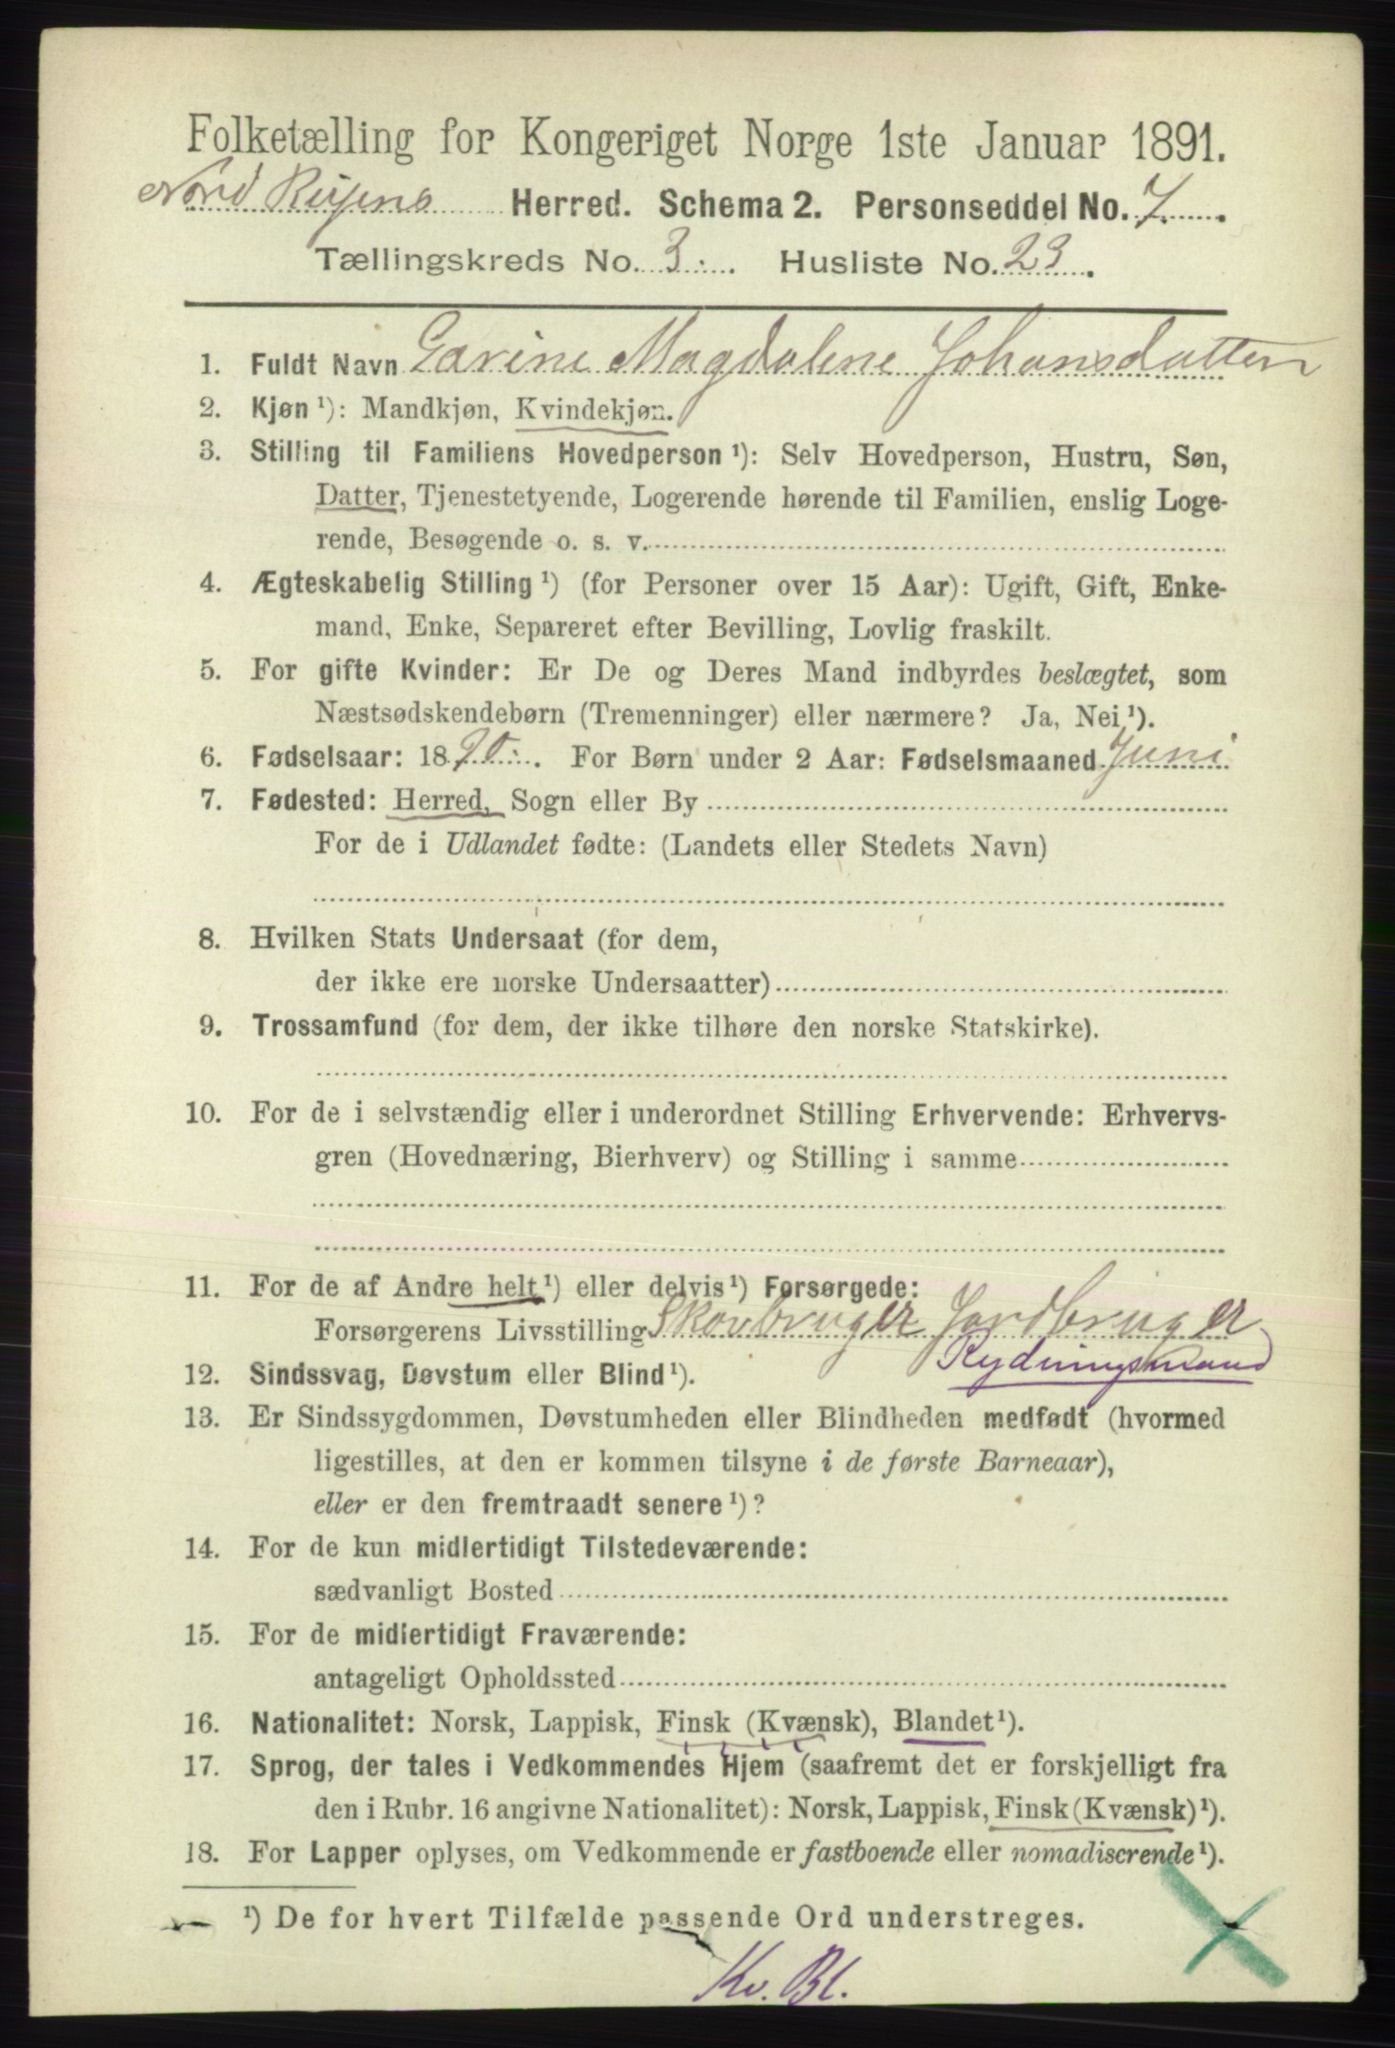 Folketælling for Kongeriget Norge 1ste Januar 1891.
Nord Reisens Herred. Schema 2. Personseddel No. 7.
Tællingskreds No. 3. Husliste No. 23.
1. Fuldt Navn Carine Magdalene Johansdatter
2. Kjøn ¹): Mandkjøn, Kvindekjøn.
3. Stilling til Familiens Hovedperson ¹): Selv Hovedperson, Hustru, Søn,
Datter, Tjenestetyende, Logerende hørende til Familien, enslig Loge-
rende, Besøgende o. s. v.
4. Ægteskabelig Stilling ¹) (for Personer over 15 Aar): Ugift, Gift, Enke-
mand, Enke, Separeret efter Bevilling, Lovlig fraskilt.
5. For gifte Kvinder: Er De og Deres Mand indbyrdes beslægtet, som
Næstsødskendebørn (Tremenninger) eller nærmere? Ja, Nei ¹).
6. Fødselsaar: 1890. For Børn under 2 Aar: Fødselsmaaned Juni
7. Fødested: Herred, Sogn eller By
For de i Udlandet fødte: (Landets eller Stedets Navn)
8. Hvilken Stats Undersaat (for dem,
der ikke ere norske Undersaatter)
9. Trossamfund (for dem, der ikke tilhøre den norske Statskirke).
10. For de i selvstændig eller i underordnet Stilling Erhvervende: Erhvervs-
gren (Hovednæring, Bierhverv) og Stilling i samme
11. For de af Andre helt ¹) eller delvis ¹) Forsørgede:
Forsørgerens Livsstilling Skovbruger Jordbruger
Rydningsmand
12. Sindssvag, Døvstum eller Blind ¹).
13. Er Sindssygdommen, Døvstumheden eller Blindheden medfødt (hvormed
ligestilles, at den er kommen tilsyne i de første Barneaar),
eller er den fremtraadt senere ¹)?
14. For de kun midlertidigt Tilstedeværende:
sædvanligt Bosted
15. For de midlertidigt Fraværende:
antageligt Opholdssted
16. Nationalitet: Norsk, Lappisk, Finsk (Kvænsk), Blandet ¹).
17. Sprog, der tales i Vedkommendes Hjem (saafremt det er forskjelligt fra
den i Rubr. 16 angivne Nationalitet): Norsk, Lappisk, Finsk (Kvænsk) ¹).
18. For Lapper oplyses, om Vedkommende er fastboende eller nomadiserende ¹).
¹) De for hvert Tilfælde passende Ord understreges.
Kv. Bl.